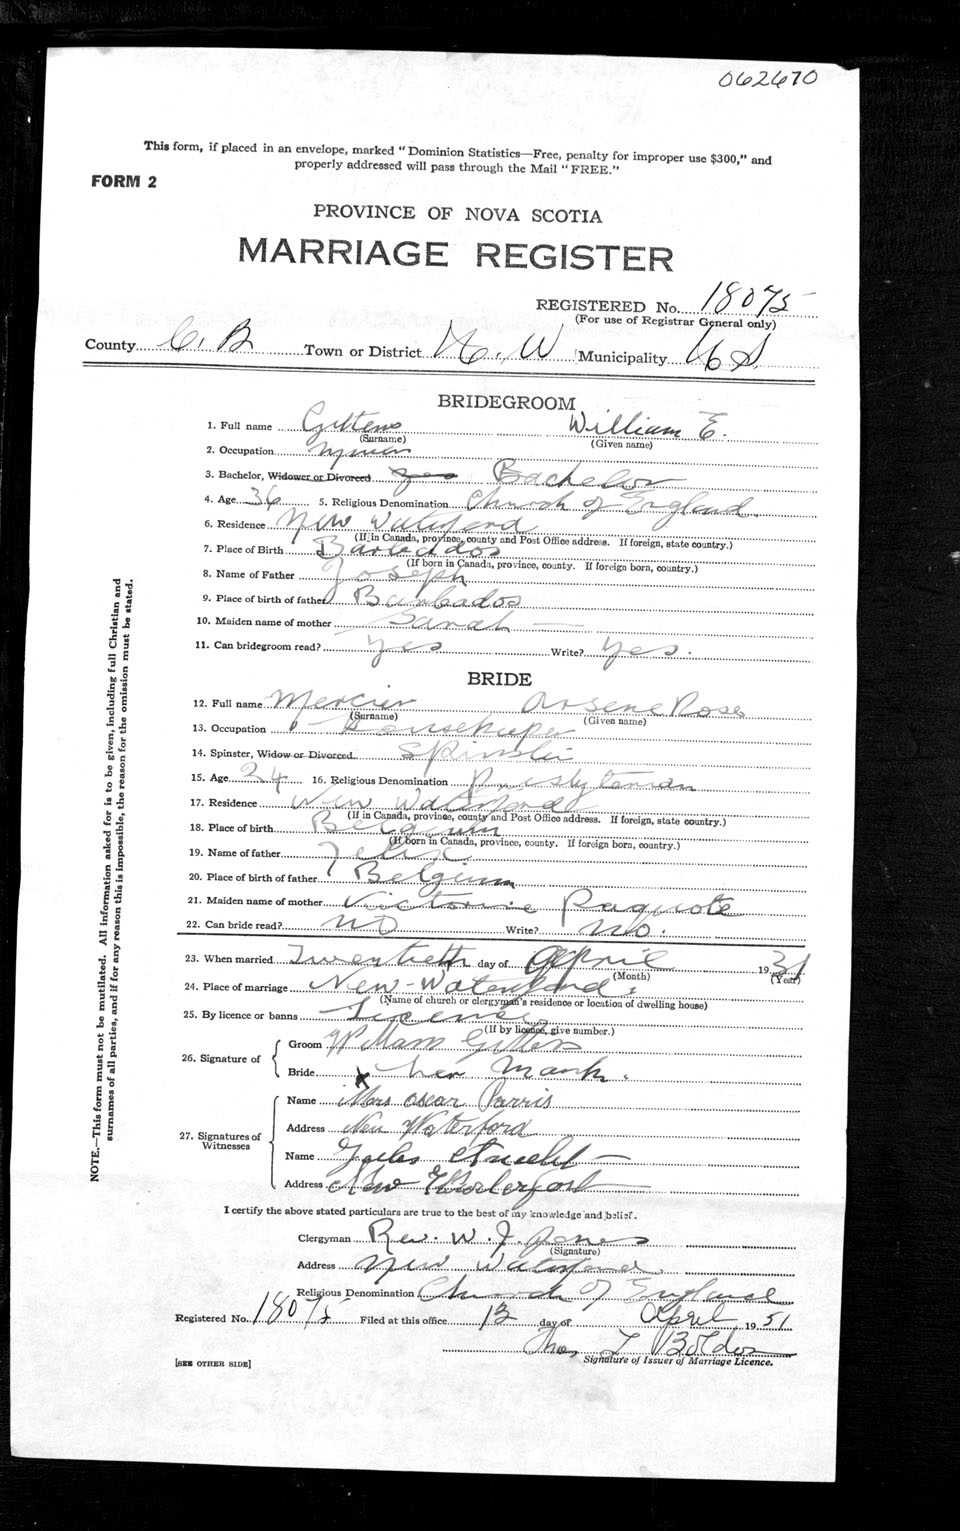 062670
This form, if placed in an envelope, marked "Dominion Statistics—Free, penalty for improper use $300," and
properly addressed will pass through the Mail "FREE."
FORM 2
PROVINCE OF NOVA SCOTIA
MARRIAGE REGISTER
REGISTERED No. 18075
(For use of Registrar General only)
County C. B Town or District N. W Municipality
BRIDEGROOM
1. Full name Gittens William E.
(Surname) (Given name)
2. Occupation
3. Bachelor, Widower or Divorced yes Bachelor
4. Age 36 5. Religious Denomination Church of England
6. Residence New Waterford
(If in Canada, province, county and Post Office address. If foreign, state country.)
7. Place of Birth Barbados
(If born in Canada, province, county. If foreign born, country.)
8. Name of Father Joseph
9. Place of birth of father Barbados
10. Maiden name of mother Sarah —
11. Can bridegroom read? yes Write? yes.
BRIDE
12. Full name Mercier Arsene Rose
(Surname) (Given name)
13. Occupation Housekeeper
14. Spinster, Widow or Divorced Spinster
15. Age 24 16. Religious Denomination Presbyterian
17. Residence New Waterford
(If in Canada, province, county and Post Office address. If foreign, state country.)
18. Place of birth Belgium
(If born in Canada, province, county. If foreign born, country.)
19. Name of father Felix
20. Place of birth of father Belgium
21. Maiden name of mother Victorine Paquote
22. Can bride read? NO Write? No.
23. When married Twentieth day of April 1931
(Month) (Year)
24. Place of marriage New-Waterford
(Name of church or clergyman's residence or location of dwelling house)
25. By licence or banns License
(If by licence, give number.)
26. Signature of Groom William Gittens
Bride X her Mark.
27. Signatures of Witnesses Name Mrs Oscar Parris
Address New Waterford
Name
Address New Waterford
I certify the above stated particulars are true to the best of my knowledge and belief.
Clergyman Rev. W. J. Jones
(Signature)
Address New Waterford
Religious Denomination Church of England
Registered No. 18075 Filed at this office 13 day of April 1951
Thos
Signature of Issuer of Marriage Licence.
[SEE OTHER SIDE]
NOTE.—This form must not be mutilated. All information asked for is to be given, including full Christian and
surnames of all parties, and if for any reason this is impossible, the reason for the omission must be stated.